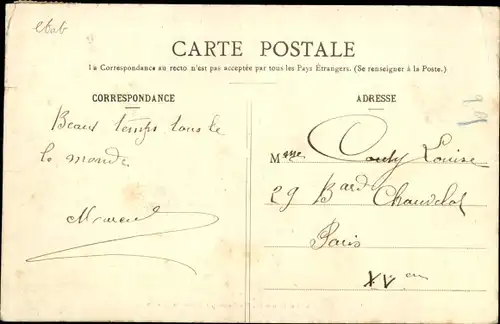 etab
CARTE POSTALE
La Correspondance au recto n'est pas acceptée par tous les Pays Étrangers. (Se renseigner à la Poste.)
CORRESPONDANCE
ADRESSE
99
Beau temps tous le
le monde
Mme Couty Louise
29 Bard Chauvelot
Paris
XVem